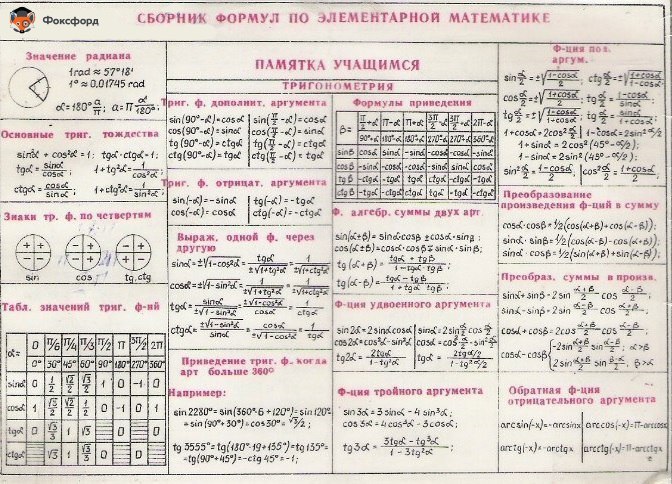 Фоксфорд
СБОРНИК ФОРМУЛ ПО ЭЛЕМЕНТАРНОЙ МАТЕМАТИКЕ
ПАМЯТКА УЧАЩИМСЯ
ТРИГОНОМЕТРИЯ
Значение радиана
1rad ≈ 57°18'
1° ≈ 0,01745 rad
α=180° a/π; a=π α°/180°
Основные триг. тождества
sin²α + cos²α = 1; tgα·ctgα=1;
tgα= sinα/cosα; 1+tg²α= 1/cos²α;
ctgα= cosα/sinα; 1+ctg²α= 1/sin²α;
Знаки тр. ф. по четвертям
+ + - -
- + - +
- + + -
sin cos tg,ctg
Табл. значений триг. ф-ий
α= 0 π/6 π/4 π/3 π/2 π 3π/2 2π
0° 30° 45° 60° 90° 180° 270° 360°
sinα 0 1/2 √2/2 √3/2 1 0 -1 0
cosα 1 √3/2 √2/2 1/2 0 -1 0 1
tgα 0 √3/3 1 √3 0 0
ctgα √3 1 √3/3 0 0
Триг. ф. дополнит. аргумента
sin(90°-α)=cosα sin(π/2-α)=cosα
cos(90°-α)=sinα cos(π/2-α)=sinα
tg(90°-α)=ctgα tg(π/2-α)=ctgα
ctg(90°-α)=tgα ctg(π/2-α)=tgα
Триг. ф. отрицат. аргумента
sin(-α)=-sinα tg(-α)=-tgα
cos(-α)=cosα ctg(-α)=-ctgα
Выраж. одной ф. через
другую
sinα=±√1-cos²α = tgα/±√1+tg²α = 1/±√1+ctg²α
cosα=±√1-sin²α = 1/±√1+tg²α = ctgα/±√1+ctg²α
tgα= sinα/±√1-sin²α = ±√1-cos²α/cosα = 1/ctgα
ctgα= ±√1-sin²α/sinα = cosα/±√1-cos²α = 1/tgα
Приведение триг. ф. когда
арг больше 360°
Например:
sin 2280°=sin(360°·6+120°)=sin120°=
=sin(90°+30°)=cos30°=√3/2;
tg 3555°=tg(180°·19+135°)=tg135°=
=tg(90°+45°)=-ctg45°=-1;
Формулы приведения
β= π/2+α π-α π+α 3π/2-α 3π/2+α 2π-α
90°+α 180°-α 180°+α 270°-α 270°+α 360°-α
sinβ cosα sinα -sinα -cosα -cosα -sinα
cosβ -sinα -cosα -cosα -sinα sinα cosα
tgβ -ctgα -tgα tgα ctgα -ctgα -tgα
ctgβ -tgα -ctgα ctgα tgα -tgα -ctgα
Ф. алгебр. суммы двух арг
sin(α±β)=sinα·cosβ±cosα·sinβ;
cos(α±β)=cosα·cosβ∓sinα·sinβ;
tg(α+β)= tgα+tgβ/1-tgα·tgβ;
tg(α-β)= tgα-tgβ/1+tgα·tgβ;
Ф-ция удвоенного аргумента
sin2α=2sinα·cosα; sinα=2sin α/2 cos α/2
cos2α=cos²α-sin²α; cosα=cos² α/2-sin² α/2
tg2α= 2tgα/1-tg²α; tgα= 2tgα/2/1-tg²α/2
Ф-ция тройного аргумента
sin3α=3sinα-4sin³α;
cos3α=4cos³α-3cosα;
tg3α= 3tgα-tg³α/1-3tg²α;
Ф-ция пол.
аргум.
sin α/2=±√1-cosα/2; ctg α/2=±√1+cosα/1-cosα
cos α/2=±√1+cosα/2; tg α/2= 1-cosα/sinα
tg α/2=±√1-cosα/1+cosα; tg α/2= sinα/1+cosα
1+cosα=2cos² α/2 1-cosα=2sin² α/2
1+sinα=2cos²(45°-α/2);
1-sinα=2sin²(45°-α/2);
sin² α/2= 1-cosα/2 cos² α/2= 1+cosα/2
Преобразование
произведения ф-ций в сумму
cosα·cosβ=1/2(cos(α+β)+cos(α-β));
sinα·sinβ=1/2(cos(α-β)-cos(α+β));
sinα·cosβ=1/2(sin(α+β)+sin(α-β));
Преобраз. суммы в произв.
sinα+sinβ=2sin α+β/2 cos α-β/2;
sinα-sinβ=2sin α-β/2 cos α+β/2;
cosα+cosβ=2cos α+β/2 cos α-β/2;
cosα-cosβ -2sin α+β/2 sin α-β/2; α>β
2sin α+β/2 sin β-α/2, β>α
Обратная ф-ция
отрицательного аргумента
arcsin(-x)=-arcsinx arccos(-x)=π-arccosx
arctg(-x)=-arctgx arcctg(-x)=π-arcctgx